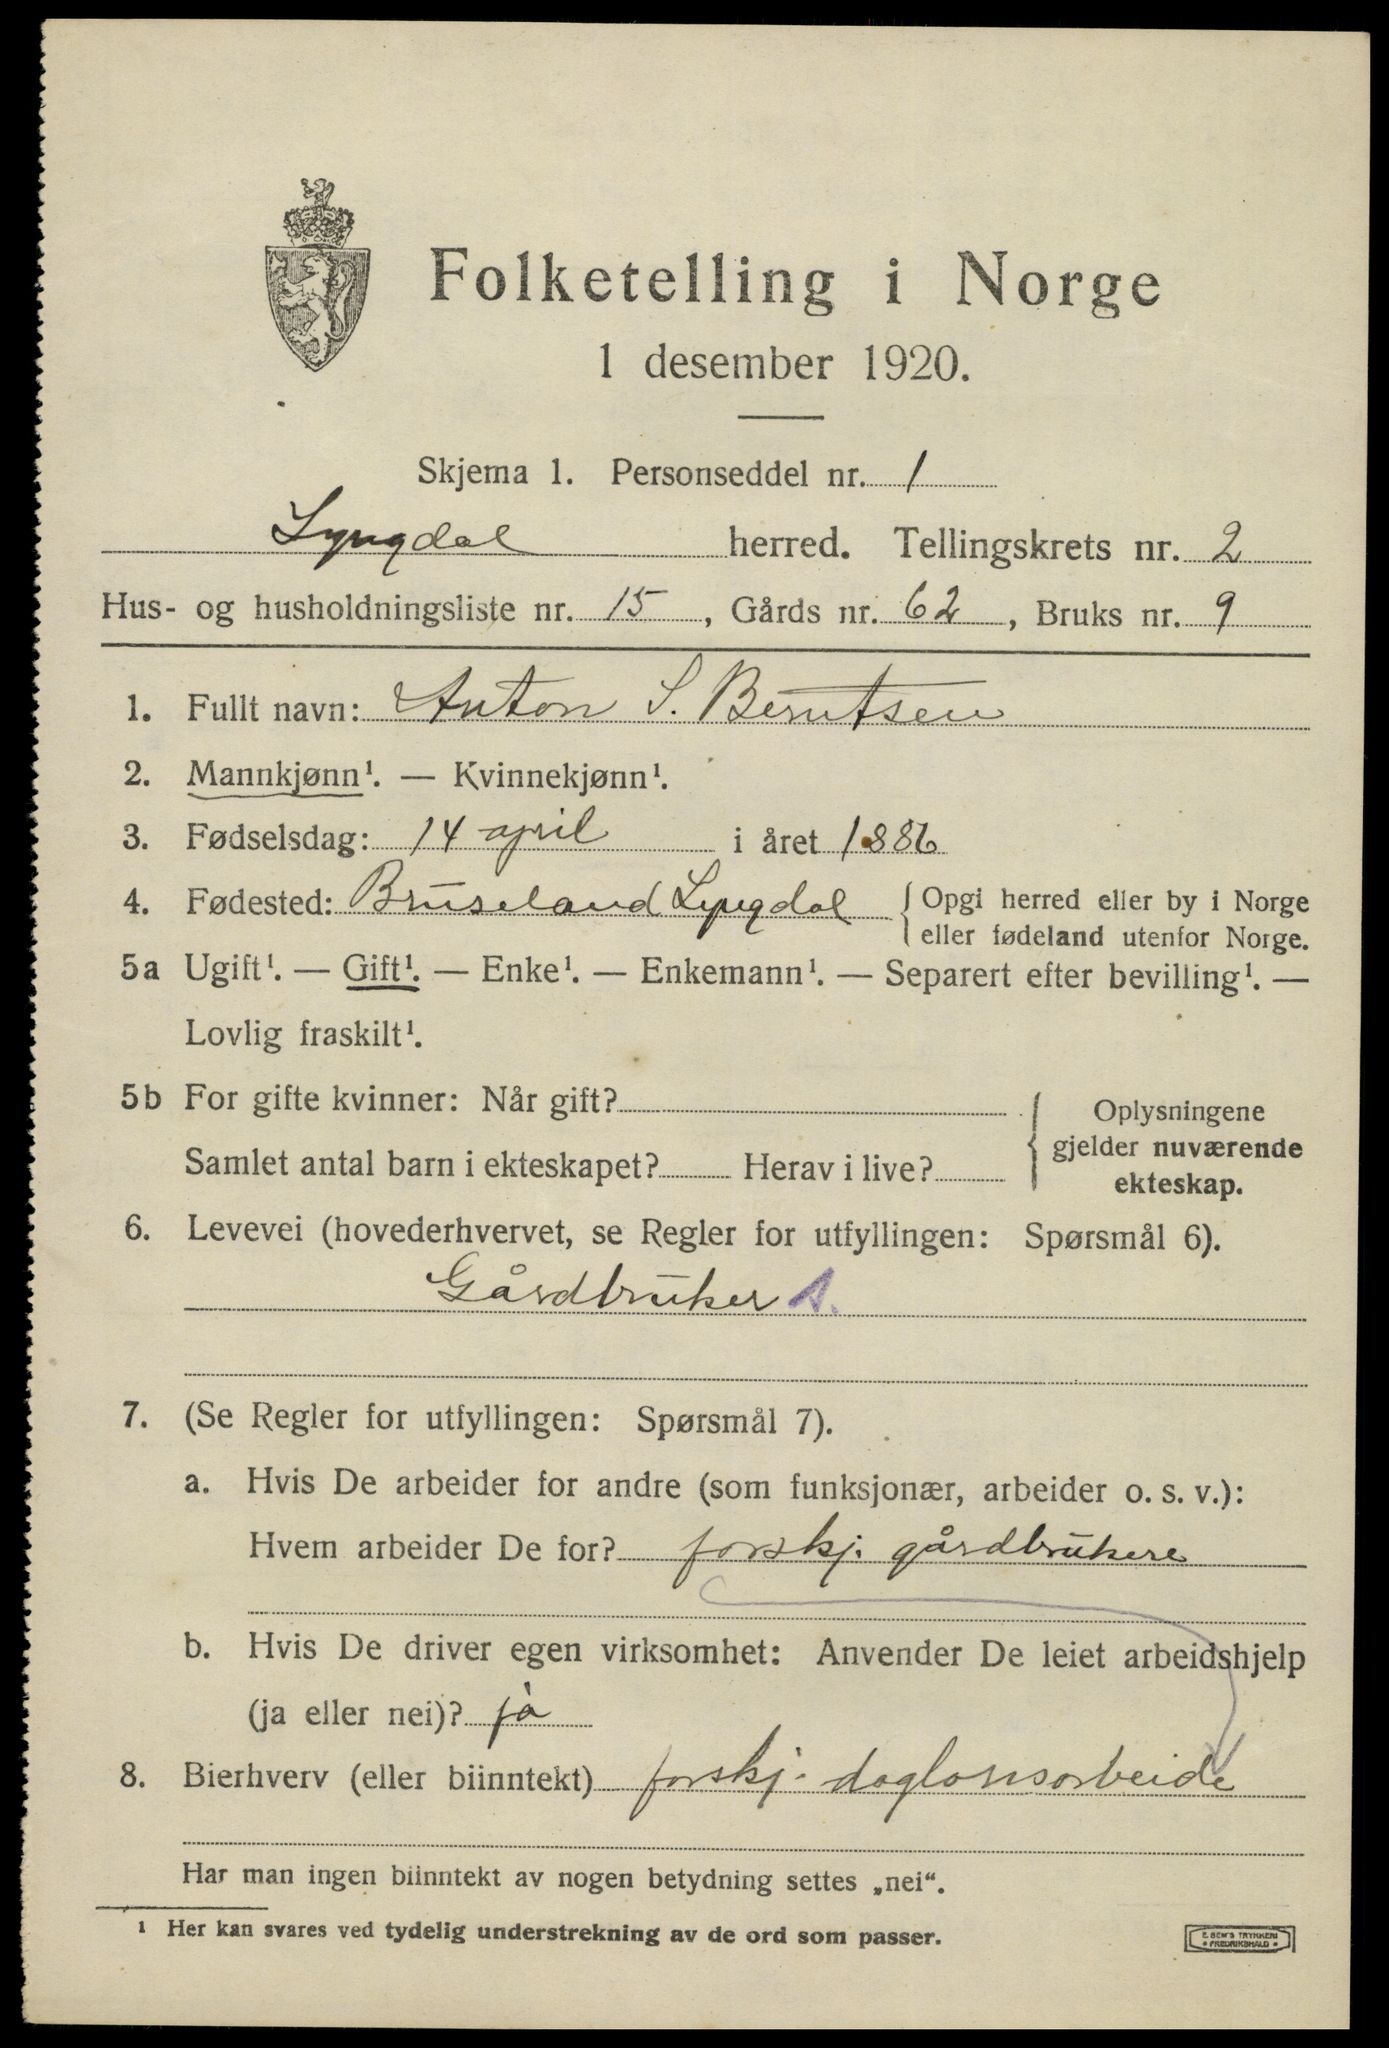 Folketelling i Norge
1 desember 1920.
Skjema 1. Personseddel nr. 1
Lyngdal herred. Tellingskrets nr. 2
Hus- og husholdningsliste nr. 15, Gårds nr. 62, Bruks nr. 9
1. Fullt navn: Anton S. Berntsen
2. Mannkjønn¹. — Kvinnekjønn¹.
3. Fødselsdag: 14 april i året 1886
4. Fødested: Bruseland Lyngdal { Opgi herred eller by i Norge
eller fødeland utenfor Norge.
5a Ugift¹. — Gift¹. — Enke¹. — Enkemann¹. — Separert efter bevilling¹. —
Lovlig fraskilt¹.
5b For gifte kvinner: Når gift?
Samlet antal barn i ekteskapet? Herav i live?
Oplysningene
gjelder nuværende
ekteskap.
6. Levevei (hovederhvervet, se Regler for utfyllingen: Spørsmål 6).
Gårdbruker A.
7. (Se Regler for utfyllingen: Spørsmål 7).
a. Hvis De arbeider for andre (som funksjonær, arbeider o. s. v.):
Hvem arbeider De for? forskj. gårdbrukere
b. Hvis De driver egen virksomhet: Anvender De leiet arbeidshjelp
(ja eller nei)? ja
8. Bierhverv (eller biinntekt) forskj. daglønsarbeide
Har man ingen biinntekt av nogen betydning settes „nei“.
¹ Her kan svares ved tydelig understrekning av de ord som passer.
E. SEM'S TRYKKERI
• FREDRIKSHALD •